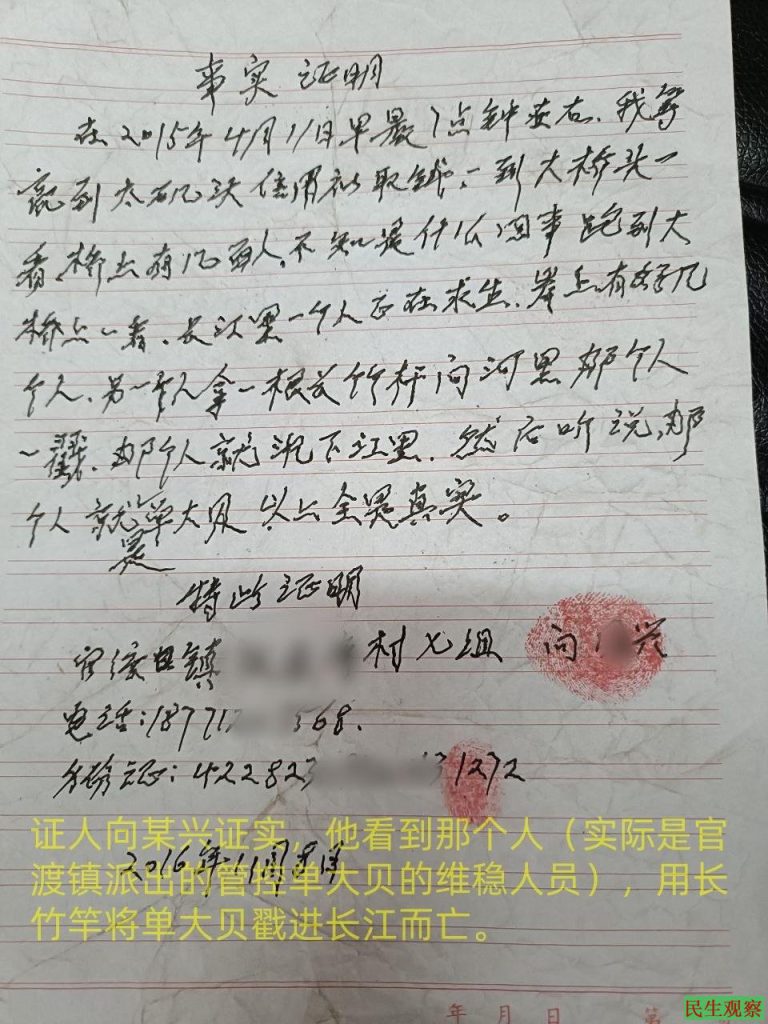 事实证明
在2015年4月11日早晨7点钟左右、我等
到太 信用社取钱、一到大桥头一
看、桥上有几百人,不知是什么回事跑到大
桥上一看、长江里一个人正在求生、岸上有好几
个人、另一个人拿一根长竹杆向河里那个人
一戳、那个人就沉下江里、然后听说、那
个人就是单大贝 以上全是真实。
特此证明
官渡口镇 村七组 向 兴
电话:18771 568.
身份证:422823 31272
2016年11月
证人向某兴证实,他看到那个人(实际是官
渡镇派出的管控单大贝的维稳人员),用长
竹竿将单大贝戳进长江而亡。
年 月 日 第
民生观察